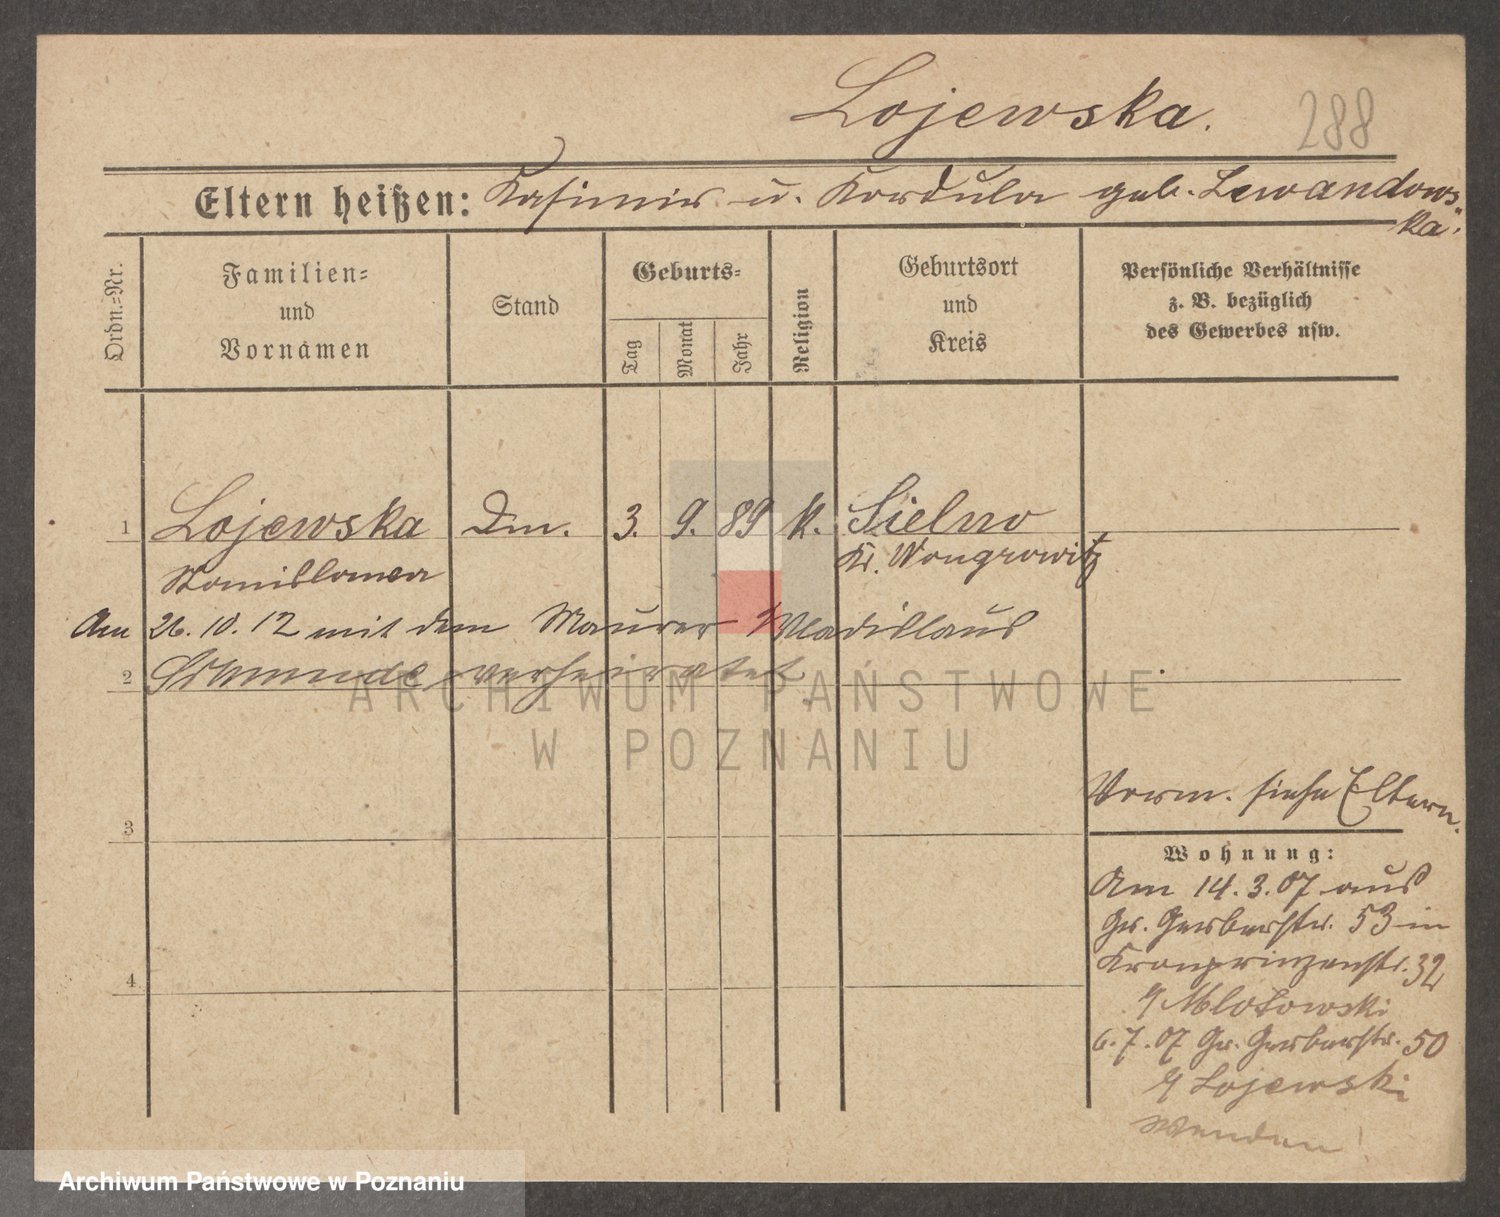 Lojewska.
288
Eltern heißen: Kasimir u. Kordula geb. Lewandows-
ka.
Ordn.-Nr.
Familien-
und
Vornamen
Stand
Geburts-
Tag
Monat
Jahr
Religion
Geburtsort
und
Kreis
Persönliche Verhältnisse
z. B. bezüglich
des Gewerbes usw.
1 Lojewska Dm. 3. 9. 89 k. Sielno
Stanislawa Kr. Wongrowitz
Am 26. 10. 12 mit dem Maurer Wladislaus
2 verheiratet.
ARCHIWUM PAŃSTWOWE
W POZNANIU
Vorm. siehe Eltern.
3
Wohnung:
Am 14. 3. 07 aus
Gr. Gerberstr. 53 in
Kronprinzenstr. 32
4
b/ Mlotowski
6. 7. 07 Gr. Gerberstr. 50
b/ Lojewski
Wenden!
Archiwum Państwowe w Poznaniu